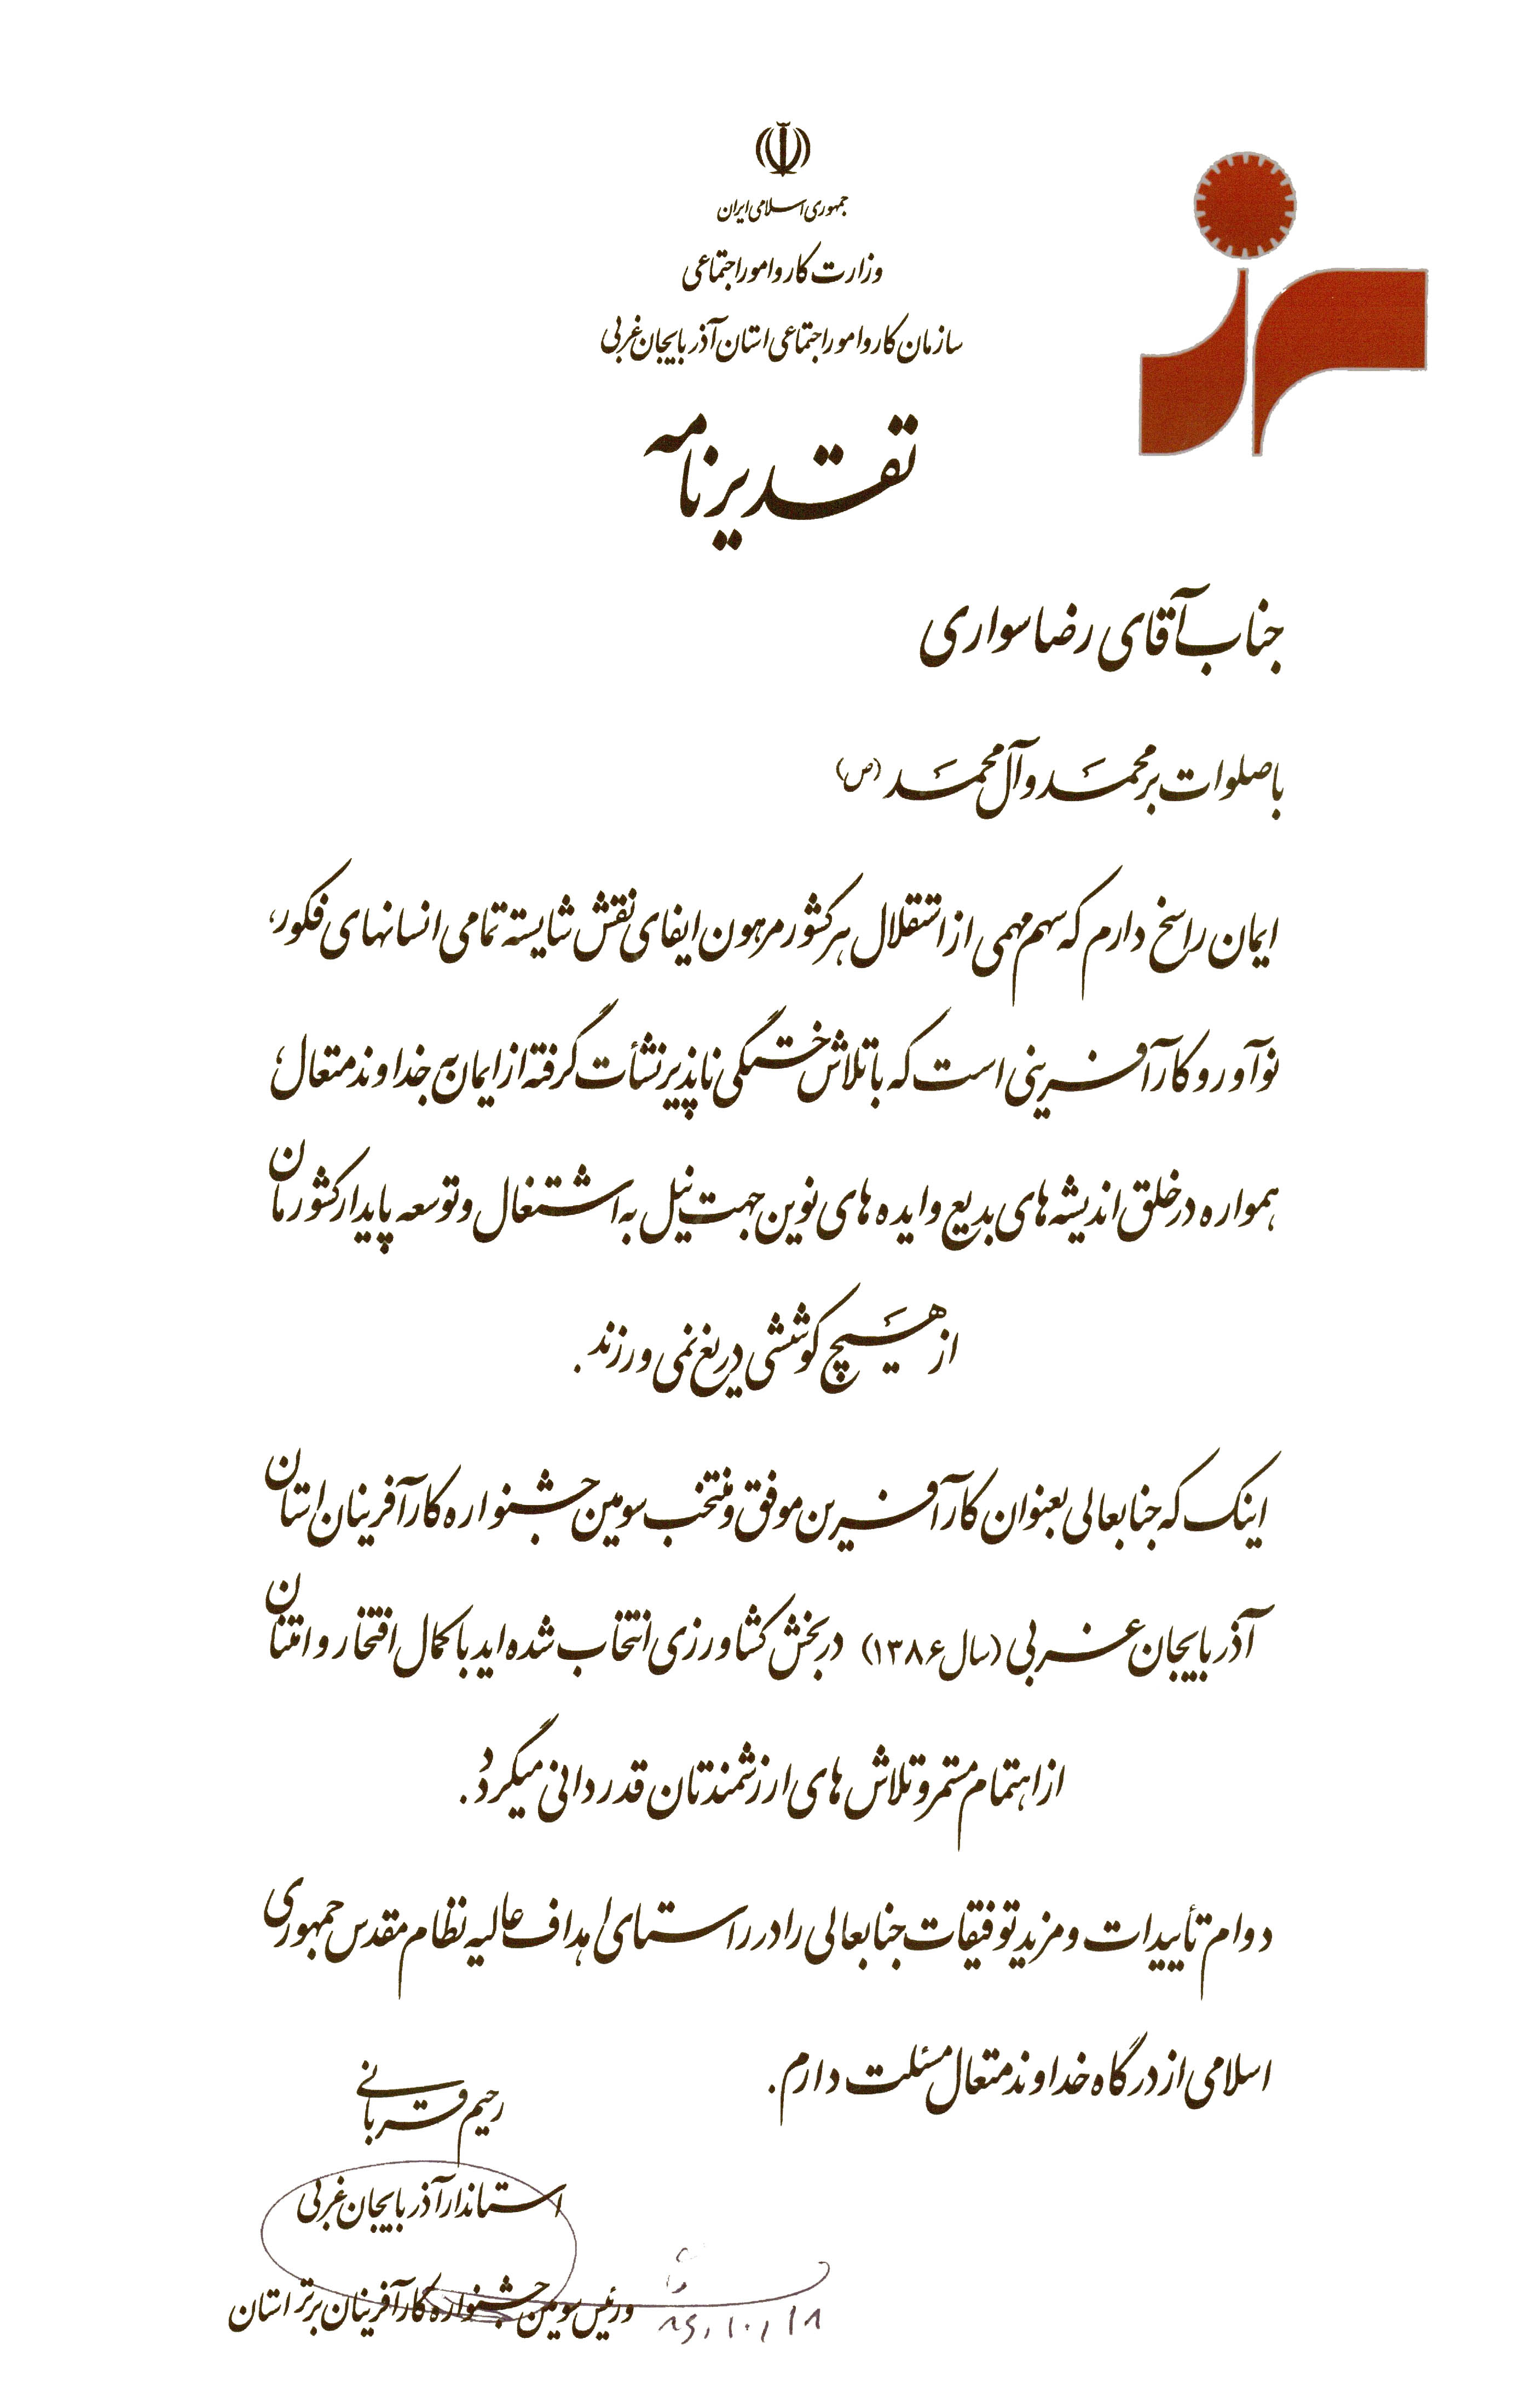 جمهوری اسلامی ایران
وزارت کار و امور اجتماعی
سازمان کار و امور اجتماعی استان آذربایجان غربی
تقدیرنامه
جناب آقای رضا سواری
با صلوات بر محمد و آل محمد (ص)
ایمان راسخ دارم که سهم مهمی از استقلال هر کشور مرهون ایفای نقش شایسته تمامی انسانهای فکور،
نوآور و کارآفرینی است که با تلاش خستگی ناپذیر نشأت گرفته از ایمان به خداوند متعال؛
همواره در خلق اندیشه های بدیع و ایده های نوین جهت نیل به اشتغال و توسعه پایدار کشورمان
از هیچ کوششی دریغ نمی ورزند.
اینک که جنابعالی بعنوان کارآفرین موفق و منتخب سومین جشنواره کارآفرینان استان
آذربایجان غربی (سال ۱۳۸۶) در بخش کشاورزی انتخاب شده اید با کمال افتخار و امتنان
از اهتمام مستمر و تلاش های ارزشمندتان قدردانی میگردد.
دوام تأییدات و مزید توفیقات جنابعالی را در راستای اهداف عالیه نظام مقدس جمهوری
اسلامی از درگاه خداوند متعال مسئلت دارم.
رحیم قربانی
استاندار آذربایجان غربی
و رئیس سومین جشنواره کارآفرینان برتر استان
۸۶/۱۰/۱۸